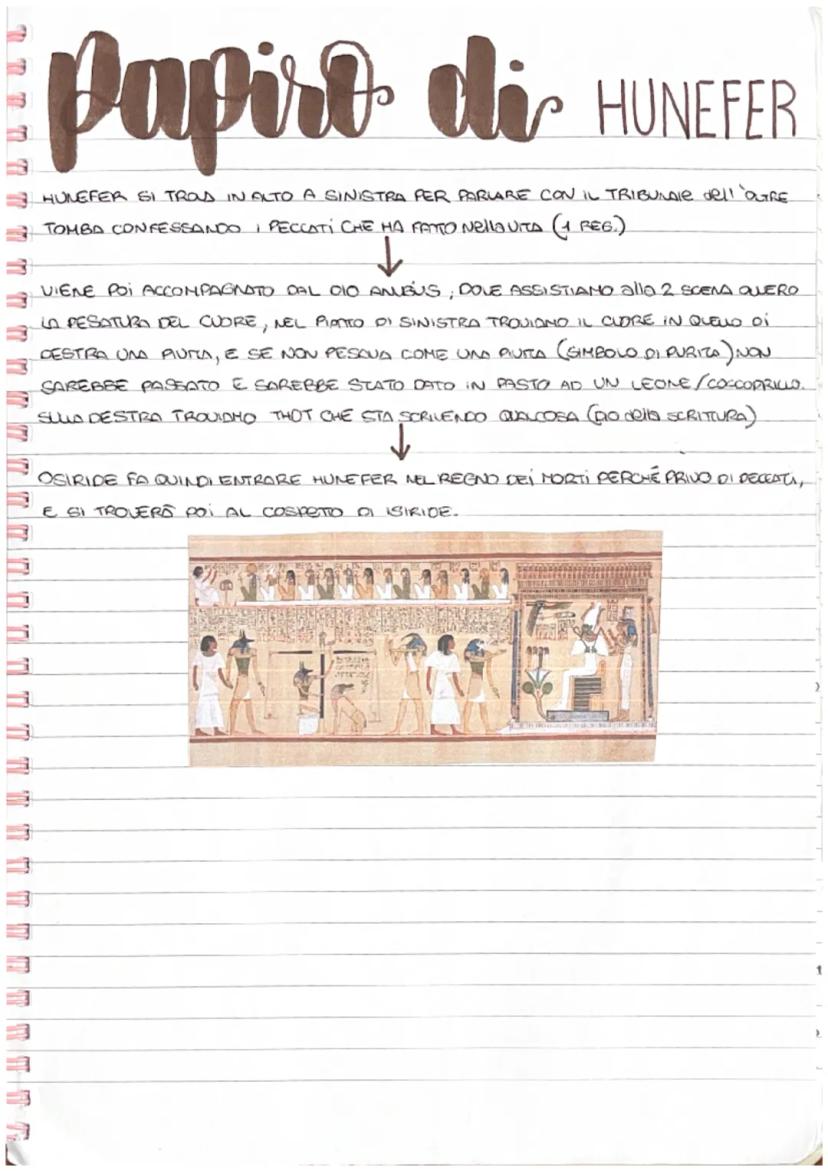 papiro di HUNEFER
HUNEFER SI TROVA IN ALTO A SINISTRA PER PARLARE CON IL TRIBUNALE dell'OLTRE
TOMBA CONFESSANDO I PECCATI CHE HA FATTO NELLA VITA (1 REG.)
VIENE POI ACCOMPAGNATO DAL DIO ANUBIS, DOVE ASSISTIAMO alla 2 SCENA OVVERO
LA PESATURA DEL CUORE, NEL PIATTO DI SINISTRA TROVIAMO IL CUORE IN QUELLO DI
DESTRA UNA PIUMA, E SE NON PESAVA COME UNA PIUMA (SIMBOLO DI PUREZZA) NON
SAREBBE PASSATO E SAREBBE STATO DATO IN PASTO AD UN LEONE/COCCODRILLO.
SULLA DESTRA TROVIAMO THOT CHE STA SCRIVENDO QUALCOSA (DIO della SCRITTURA)
OSIRIDE FA QUINDI ENTRARE HUNEFER NEL REGNO DEI MORTI PERCHÉ PRIVO DI PECCATI,
E SI TROVERÀ POI AL COSPETTO DI ISIRIDE.